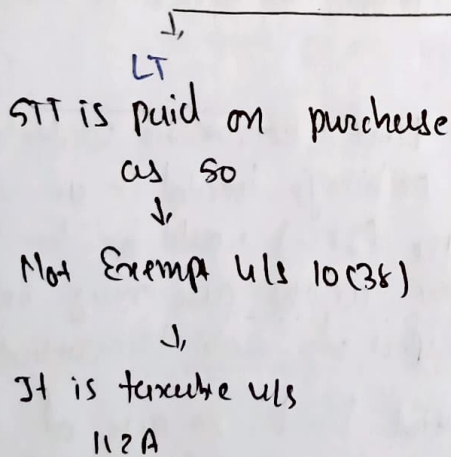 LT
STT is paid on purchase
as so
Not Exempt u/s 10(38)
It is taxable u/s
112A